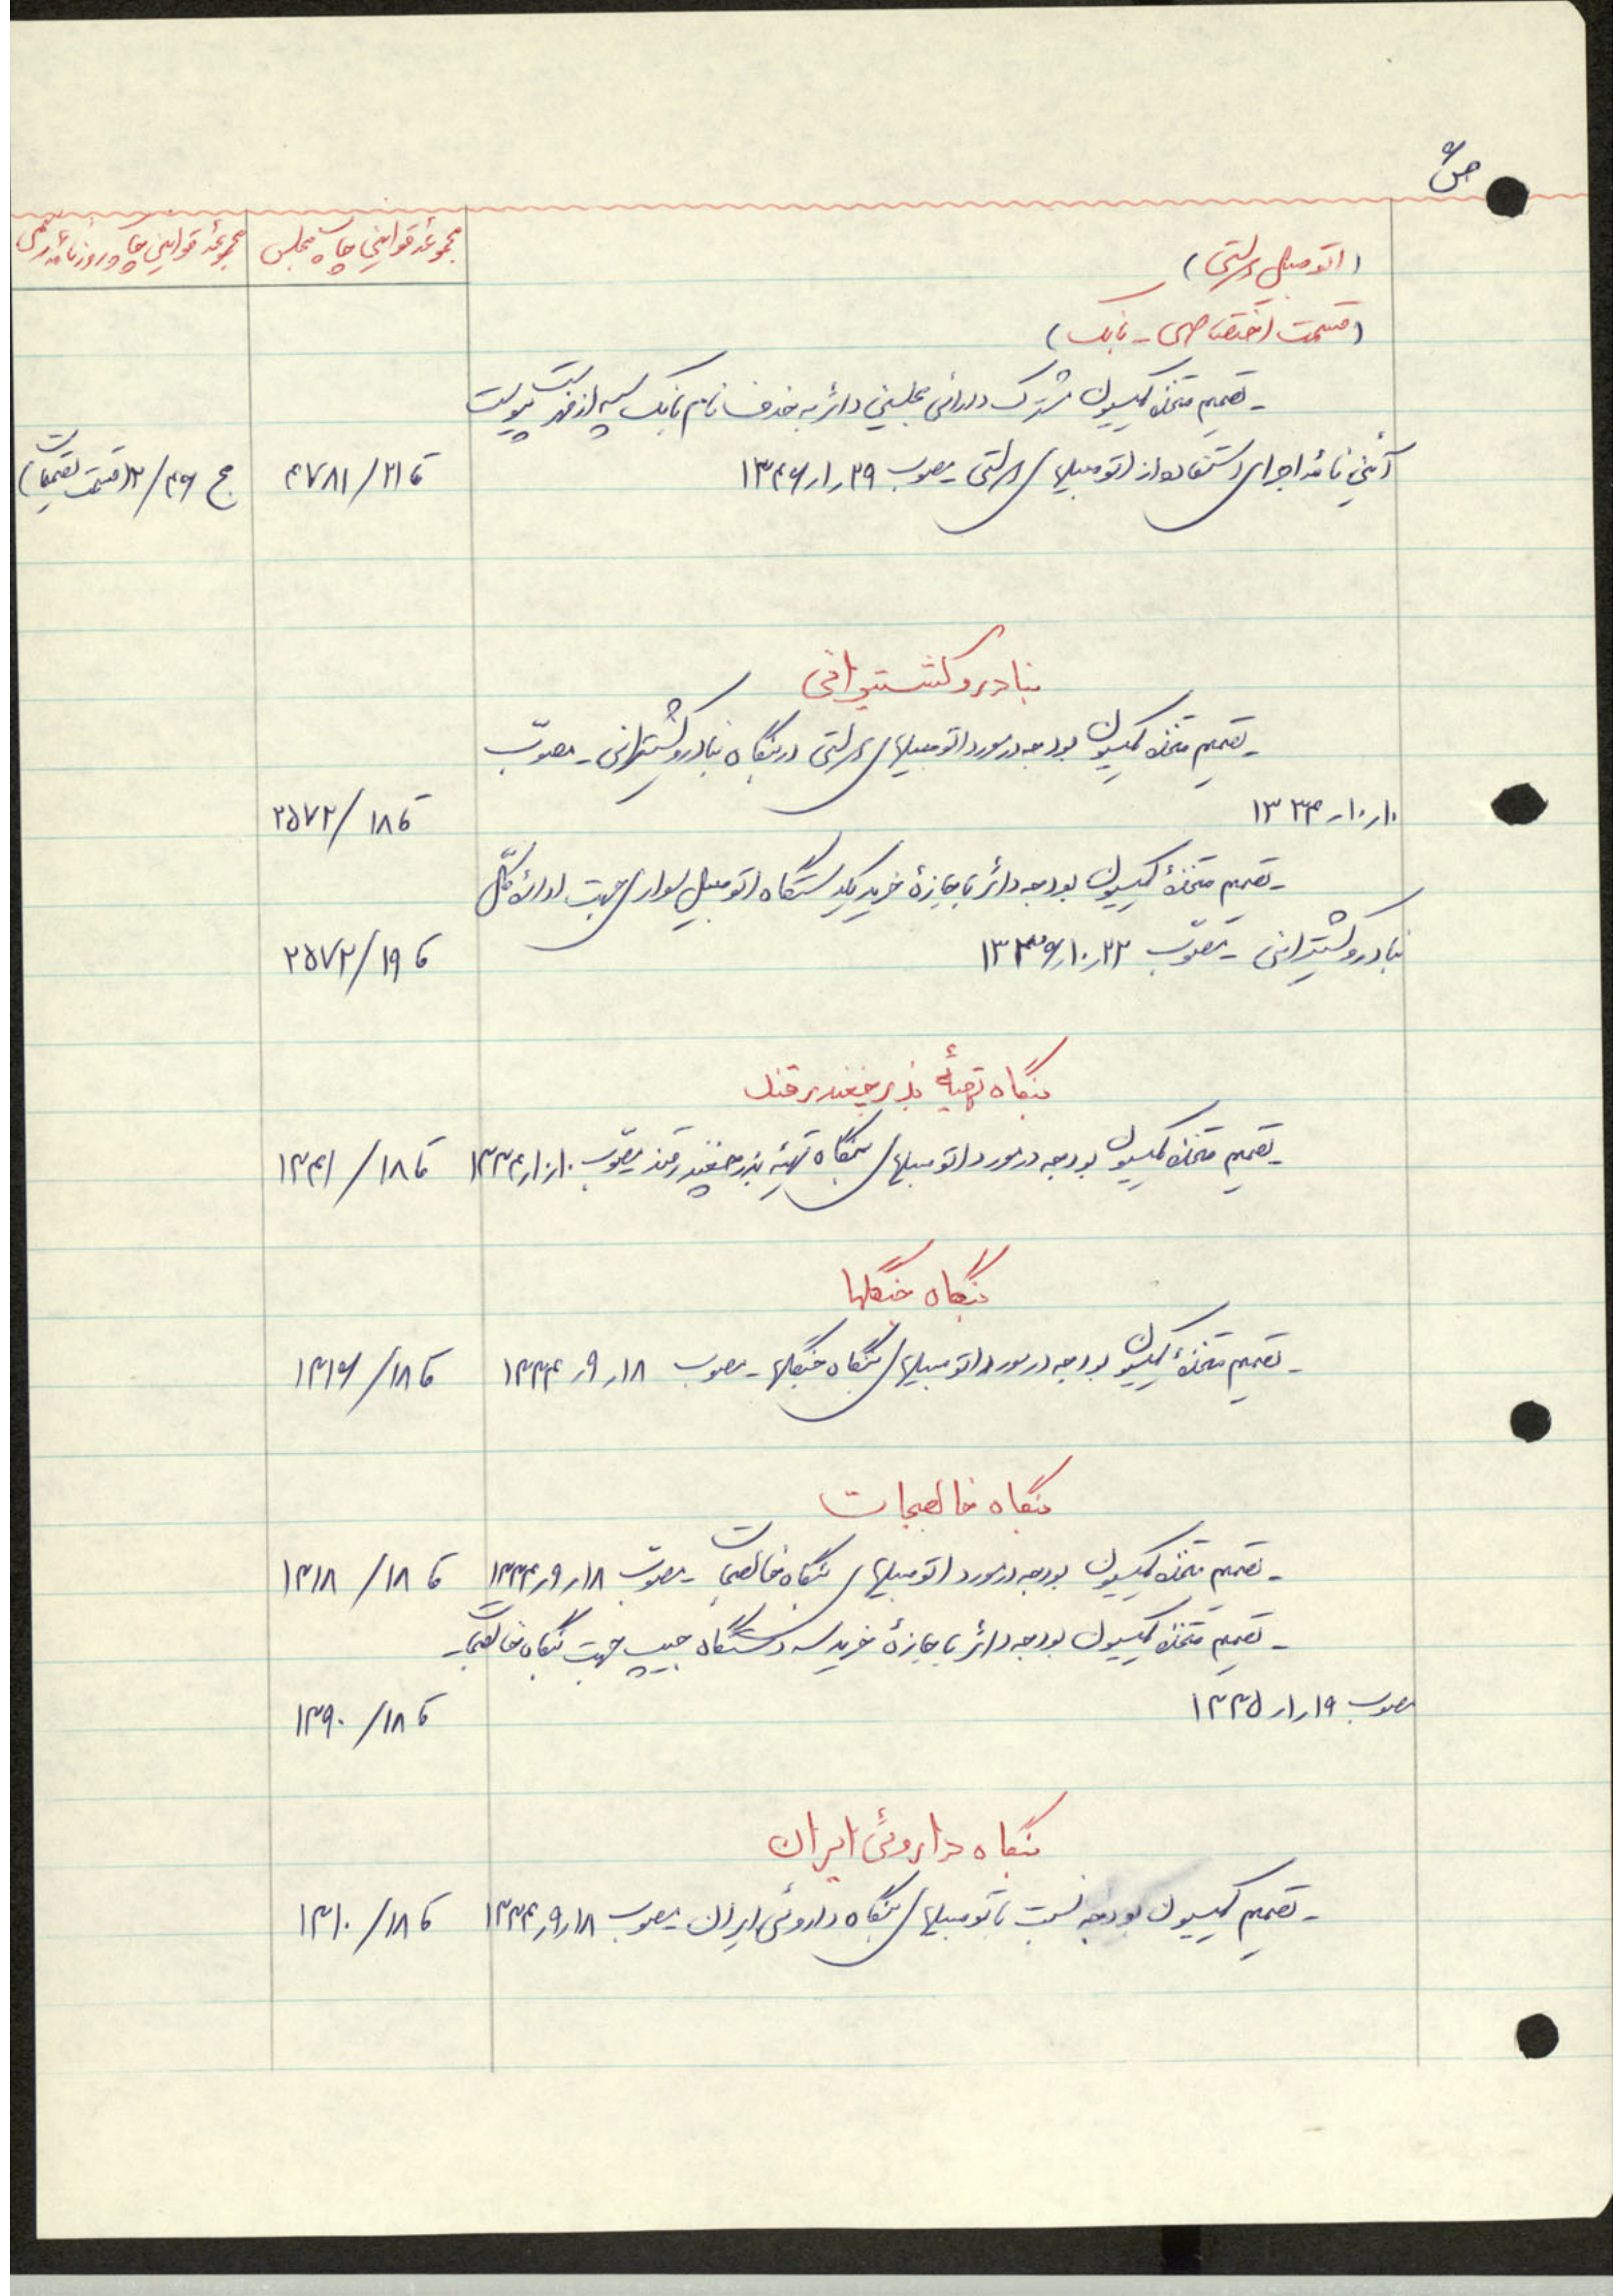 ص ۶
مجموعهٔ قوانین چاپ مجلس
مجموعهٔ قوانین چاپ روزنامهٔ رسمی
(اتومبیل دولتی)
(قسمت اختصاصی - بانک)
- تصمیم متخذه کمیسیون مشترک دارائی مجلسین دائر به حذف نام بانک سپه از فهرست پیوست
آئین نامهٔ اجرای استفاده از اتومبیلهای دولتی - مصوب ۲۹ر۱ر۱۳۴۶
قا ۲۱/ ۴۷۸۱
مج ۴۶/ ۲ (قسمت تصمیمات)
بنادر و کشتیرانی
- تصمیم متخذه کمیسیون بودجه در مورد اتومبیلهای دولتی در بنگاه بنادر و کشتیرانی - مصوّب
۱۰ر۱۰ر۱۳۳۴
قا ۱۸ /۲۵۷۲
- تصمیم متخذهٔ کمیسیون بودجه دائر باجازهٔ خرید یکدستگاه اتومبیل سواری جهت ادارهٔ کلّ
بنادر و کشتیرانی - مصوّب ۲۲ر۱۰ر۱۳۳۶
قا ۱۹ /۲۵۷۲
بنگاه تهیهٔ بذر چغندر قند
- تصمیم متخذه کمیسیون بودجه در مورد اتومبیلهای بنگاه تهیّه بذر چغندر قند مصوّب ۱۰ر۱۰ر۱۳۳۴
قا ۱۸ /۱۳۴۱
بنگاه جنگلها
- تصمیم متخذهٔ کمیسیون بودجه در مورد اتومبیلهای بنگاه جنگلها - مصوب ۱۸ر۹ر۱۳۳۴
قا ۱۸ /۱۳۱۶
بنگاه خالصجات
- تصمیم متخذه کمیسیون بودجه در مورد اتومبیلهای بنگاه خالصجات - مصوّب ۱۸ر۹ر۱۳۳۴
قا ۱۸ /۱۳۱۸
- تصمیم متخذه کمیسیون بودجه دائر باجازهٔ خرید سه دستگاه جیپ جهت بنگاه خالصجات -
مصوب ۱۹ر۱ر۱۳۳۵
قا ۱۸ /۱۳۹۰
بنگاه داروئی ایران
- تصمیم کمیسیون بودجه نسبت باتومبیلهای بنگاه داروئی ایران - مصوب ۱۸ر۹ر۱۳۳۴
قا ۱۸ /۱۳۱۰